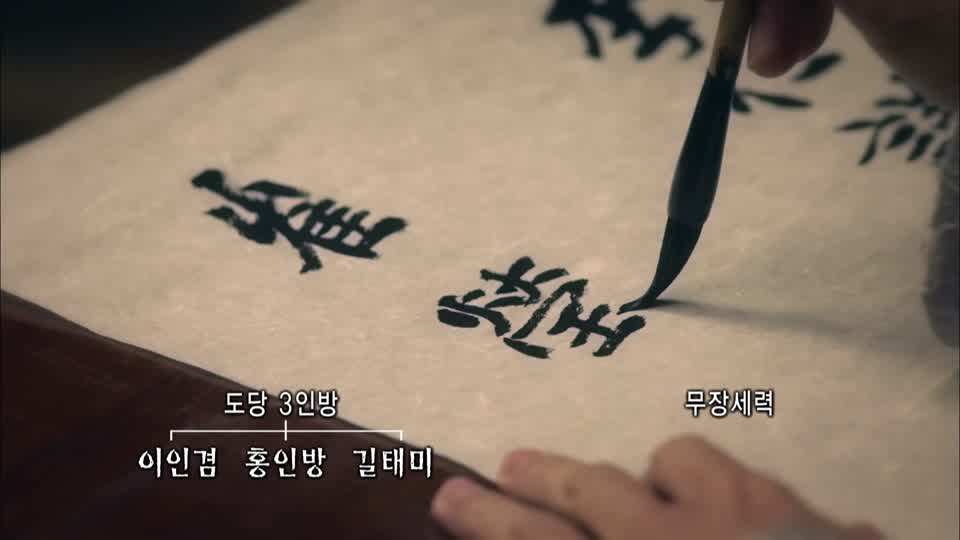 崔瑩
도당 3인방 무장세력
이인겸 홍인방 길태미